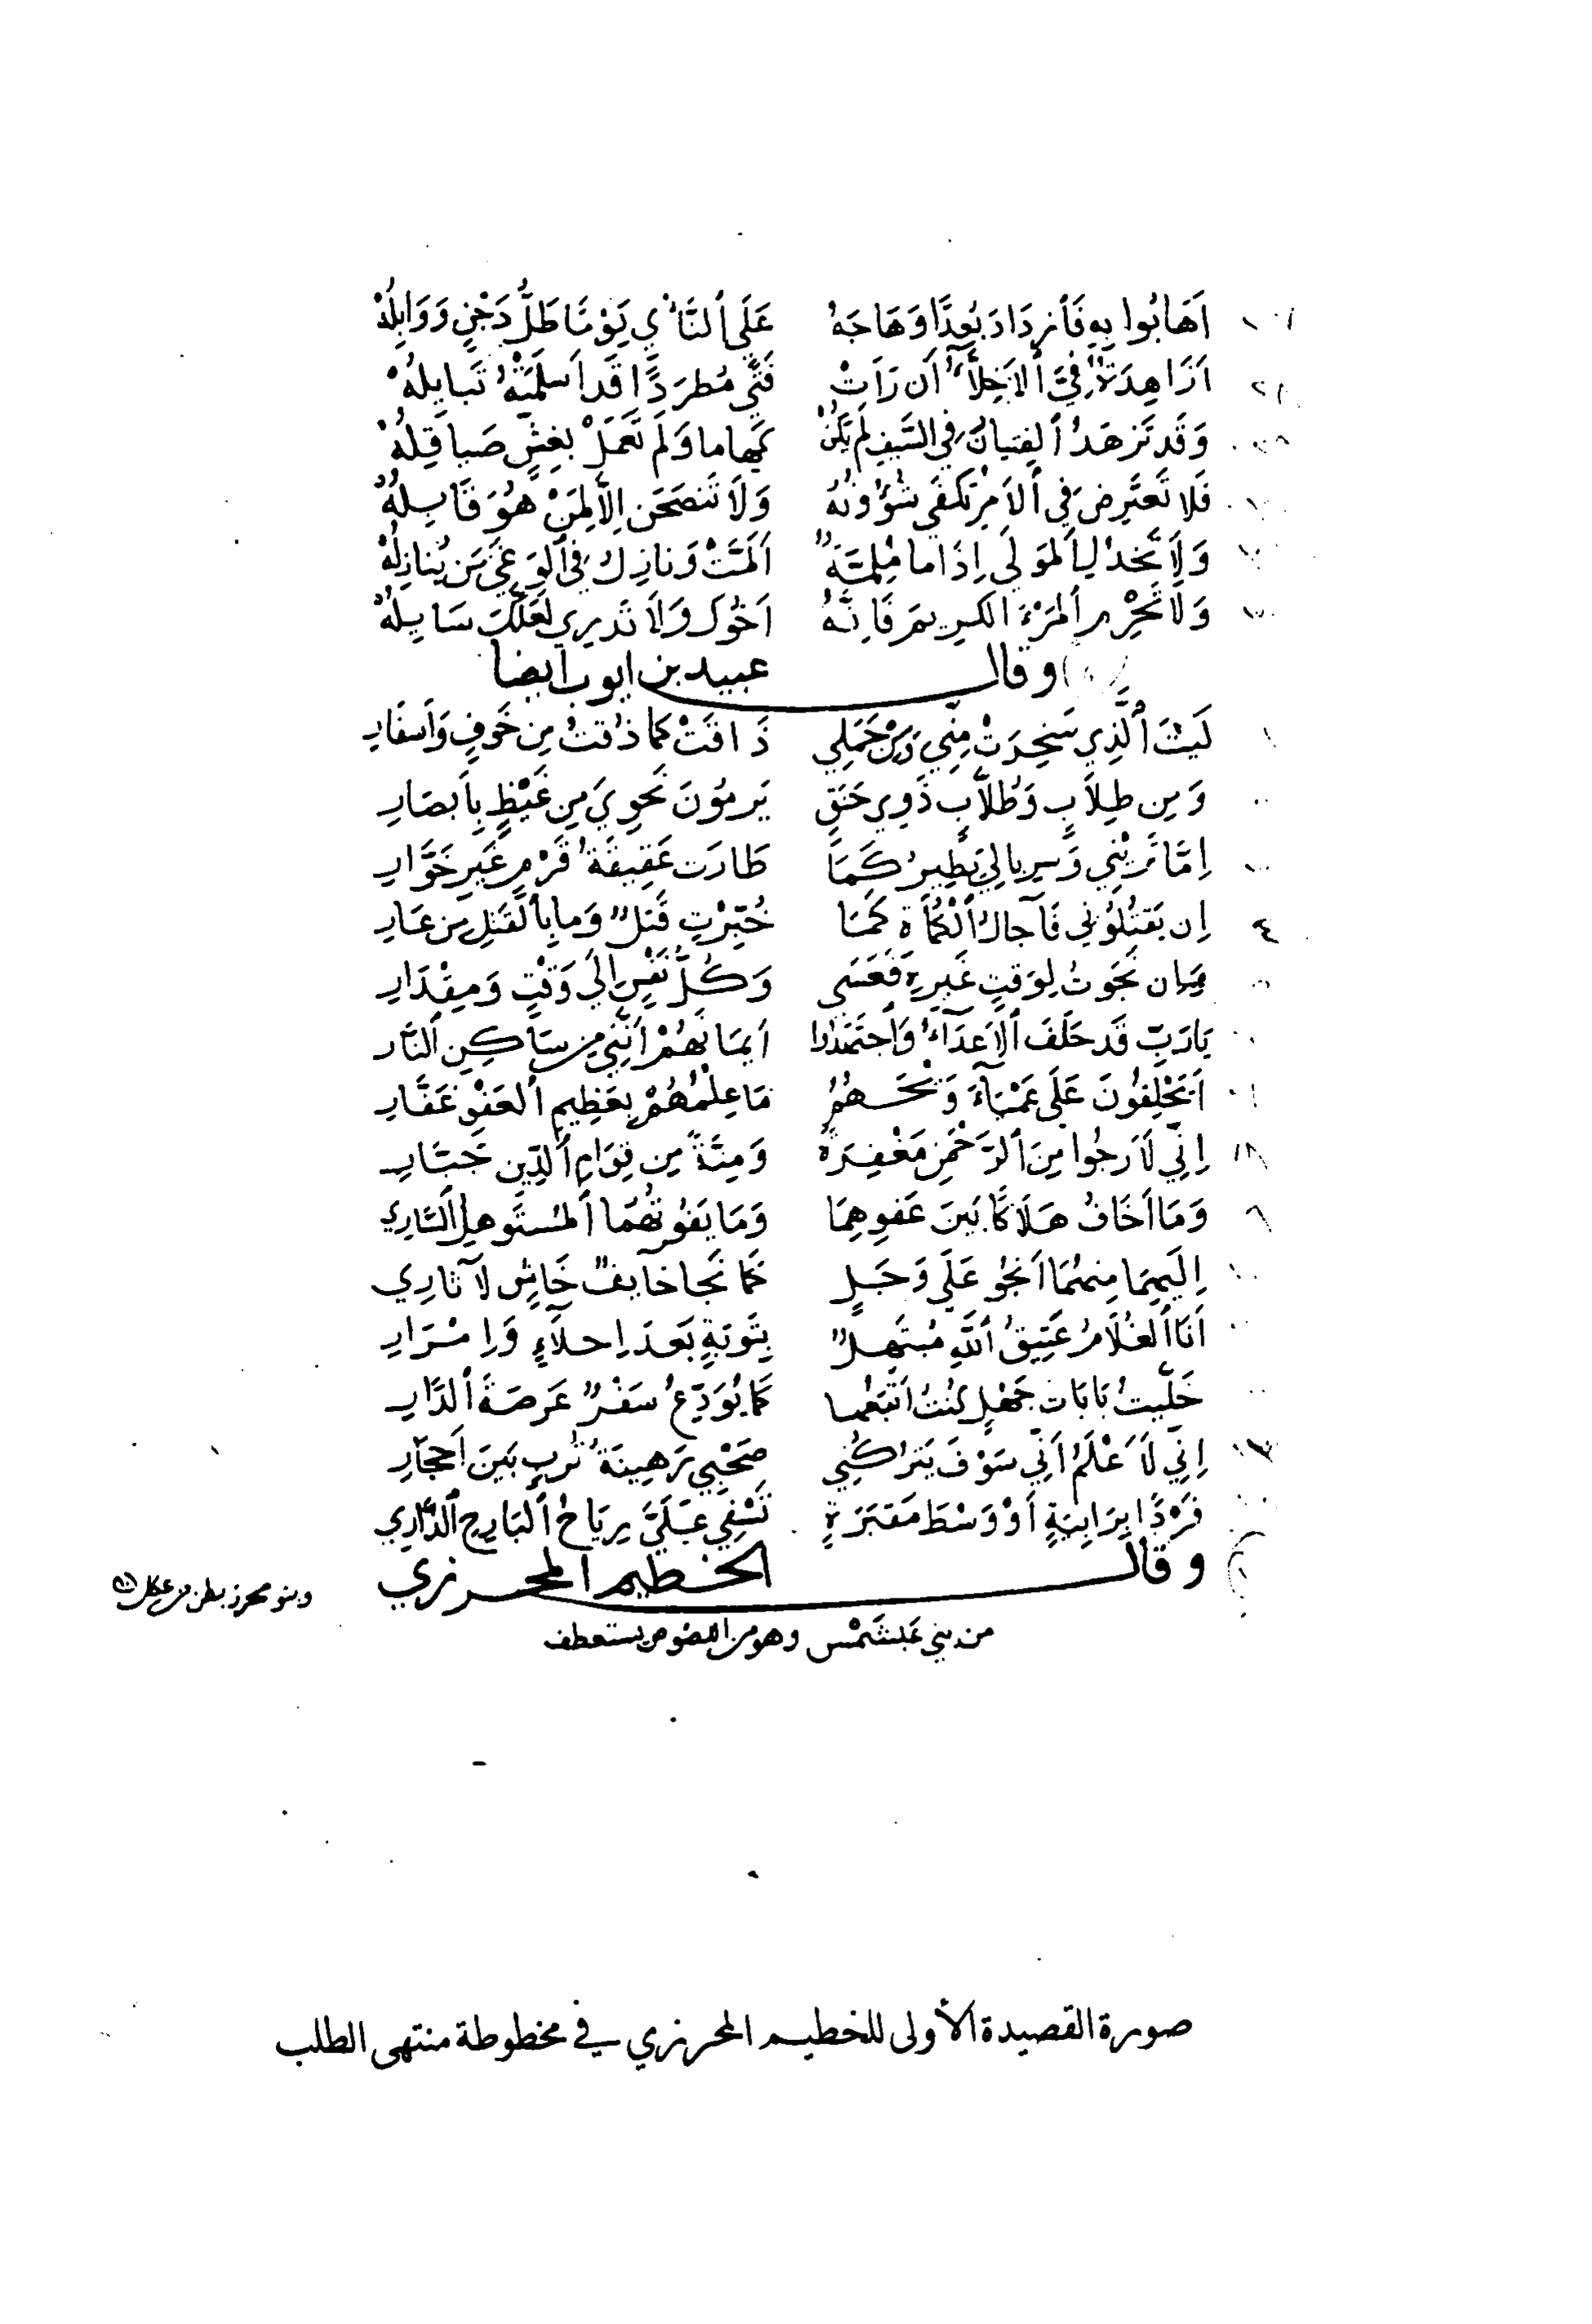 أَهَابُوا بِهِ فَأزدَادَ بُعدًا وَهَاجَهُ عَلَى ٱلنَّأيِ يَوْمًا طَلُّ دَجْنٍ وَوَابِلُهْ
أَزَاهِدَةٌ فِيَّ ٱلأَخِلَّآءُ أَن رَأَتْ فَتًى مُطرَدًا قَد أَسلَمَتْهُ قَبايِلُهْ
وَقَد تَزهَدُ ٱلفِتيانُ في السَّيفِ لَم يَكُنْ كَهاما وَلَم تَعمَلْ بِغِشٍّ صَياقِلُهْ
فَلا تَعتَرِض في ٱلأَمرِ تُكفَى شُؤُونُهُ وَلَا تَنصَحَن إِلَّا لِمَنْ هُوَ قَابِلُهْ
وَلَا تَخذُلِ المَولَى إِذَا ما مُلِمَّةٌ أَلَمَّتْ وَنازِل في ٱلوَغَى مَن يُنازِلُهْ
وَلَا تَحْرِم ٱلمَرْءَ الكَرِيمَ فَإِنَّهُ أَخُوكَ وَلَا تَدرِي لَعَلَّكَ سَايِلُهْ
وقال عبيد بن ايوب ايضا
١ لَيتَ ٱلَّذِي سَخِرَتْ مِنِّي وَمِنْ جَمَلِي ذَاقَتْ كَما ذُقتُ مِن خَوفٍ وَأَسفَارِ
وَمِن طِلَابٍ وَطُلَّابٍ ذَوِي حَنَقٍ يَرمُونَ نَحوِيَ مِن غَيْظٍ بِأَبصَارِ
إِمَّا تَرَيْنِي وَسِربالِي يَطِيرُ كَمَا طَارَت عَقِيقَةُ قَرْمٍ غَيرِ خَوَّارِ
٤ إِن يَقتُلُونِي فَآجالُ ٱلْكُمَاةِ كَمَا خُبِّرْتِ قَتلٌ وَما بِٱلقَتلِ مِن عَارِ
وَإِن نَجَوتُ لِوَقتٍ غَيرِهِ فَعَسَى وَكُلُّ نَفْسٍ إِلَى وَقْتٍ وَمِقْدَارِ
يَارَبِّ قَد حَلَفَ ٱلأَعدَآءُ وَٱجتَهَدُوا أَيمَانَهُمْ أَنَّنِي مِن سَاكِنِ ٱلنَّارِ
أَيَحْلِفُونَ عَلَى عَمْيَآءَ وَيْحَهُمُ مَا عِلْمُهُمْ بِعَظِيمِ ٱلعَفْوِ غَفَّارِ
إِنِّي لَأَرجُوا مِنَ ٱلرَّحْمَنِ مَغْفِرَةً وَمِنَّةً مِن قِوَامِ ٱلدِّينِ جَبَّارِ
وَمَا أَخَافُ هَلَاكًا بَينَ عَفوِهِمَا وَمَا يَفُوتُهُمَا ٱلمُستَوهِلُ ٱلسَّارِي
إِلَيهِمَا مِنهُمَا أَنجُو عَلَى وَجَلٍ كَما نَجا خايِفٌ خَاشٍ لآثارِي
أَنَا ٱلغُلَامُ عَتِيقُ ٱللَّهِ مُبتَهِلٌ بِتَوبَةٍ بَعدَ إِحلَآءٍ وَإِمْرَارِ
خَلَّيتُ بَابَاتِ جَهْلٍ كُنتُ أَتبَعُها كَما يُوَدِّعُ سَفْرٌ عَرصَةَ ٱلدَّارِ
١٣ إِنِّي لَأَعْلَمُ أَنِّي سَوْفَ يَترُكُنِي صَحْبِي رَهِينَةَ تُربٍ بَينَ أَحجَارِ
فَرْدًا بِرَابِيَةٍ أَوْ وَسْطَ مَقبَرَةٍ تَسْفِي عَلَيَّ رِيَاحُ ٱلبَارِحِ ٱلذَّارِي
وقال الخطيم المحرزي
وبنو محرز بطن من عكل
من بني عَبشَمْس وهو من اللصوص يستعطف
صورة القصيدة الأولى للخطيم المحرزي في مخطوطة منتهى الطلب